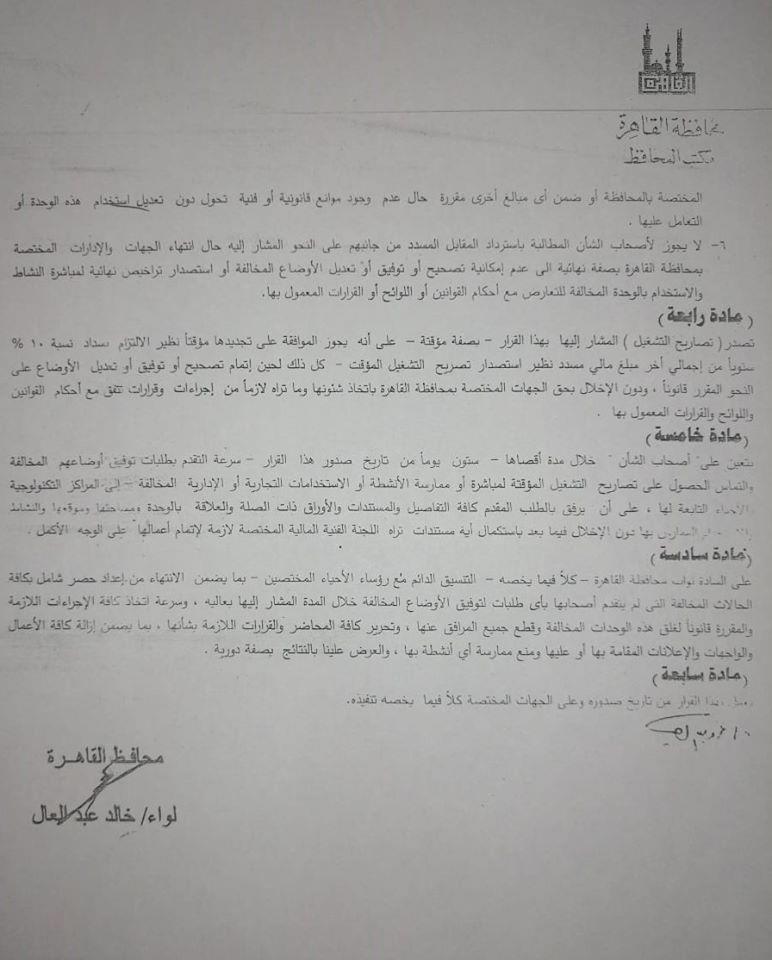 محافظة القاهرة
مكتب المحافظ
المختصة بالمحافظة أو ضمن أى مبالغ أخرى مقررة حال عدم وجود موانع قانونية أو فنية تحول دون تعديل استخدام هذه الوحدة أو
التعامل عليها .
٦- لا يجوز لأصحاب الشأن المطالبة باسترداد المقابل المسدد من جانبهم على النحو المشار إليه حال انتهاء الجهات والإدارات المختصة
بمحافظة القاهرة بصفة نهائية الى عدم إمكانية تصحيح أو توفيق أو تعديل الأوضاع المخالفة أو استصدار تراخيص نهائية لمباشرة النشاط
والاستخدام بالوحدة المخالفة للتعارض مع أحكام القوانين أو اللوائح أو القرارات المعمول بها.
(مادة رابعة)
تصدر ( تصاريح التشغيل ) المشار إليها بهذا القرار - بصفة مؤقتة - على أنه يجوز الموافقة على تجديدها مؤقتاً نظير الالتزام بسداد نسبة ١٠ %
سنوياً من إجمالي أخر مبلغ مالي مسدد نظير استصدار تصريح التشغيل المؤقت - كل ذلك لحين إتمام تصحيح أو توفيق أو تعديل الأوضاع على
النحو المقرر قانوناً ، ودون الإخلال بحق الجهات المختصة بمحافظة القاهرة باتخاذ شئونها وما تراه لازماً من إجراءات وقرارات تتفق مع أحكام القوانين
واللوائح والقرارات المعمول بها .
(مادة خامسة)
يتعين على أصحاب الشأن خلال مدة أقصاها - ستون يوماً من تاريخ صدور هذا القرار - سرعة التقدم بطلبات توفيق أوضاعهم المخالفة
والتماس الحصول على تصاريح التشغيل المؤقتة لمباشرة أو ممارسة الأنشطة أو الاستخدامات التجارية أو الإدارية المخالفة - إلى المراكز التكنولوجية
بالأحياء التابعة لها ، على أن يرفق بالطلب المقدم كافة التفاصيل والمستندات والأوراق ذات الصلة والعلاقة بالوحدة ومساحتها وموقعها والنشاط
بها دون الإخلال فيما بعد باستكمال أية مستندات تراه اللجنة الفنية المالية المختصة لازمة لإتمام أعمالها على الوجه الأكمل .
(مادة سادسة)
على السادة نواب محافظة القاهرة - كلاً فيما يخصه - التنسيق الدائم مع رؤساء الأحياء المختصين - بما يضمن الانتهاء من إعداد حصر شامل بكافة
الحالات المخالفة التى لم يتقدم أصحابها بأى طلبات لتوفيق الأوضاع المخالفة خلال المدة المشار إليها بعاليه ، وسرعة اتخاذ كافة الإجراءات اللازمة
والمقررة قانوناً لغلق هذه الوحدات المخالفة وقطع جميع المرافق عنها ، وتحرير كافة المحاضر والقرارات اللازمة بشأنها ، بما يضمن إزالة كافة الأعمال
والواجهات والإعلانات المقامة بها أو عليها ومنع ممارسة أي أنشطة بها ، والعرض علينا بالنتائج بصفة دورية .
(مادة سابعة)
القرار من تاريخ صدوره وعلى الجهات المختصة كلاً فيما يخصه تنفيذه.
محافظ القاهرة
لواء/ خالد عبد العال